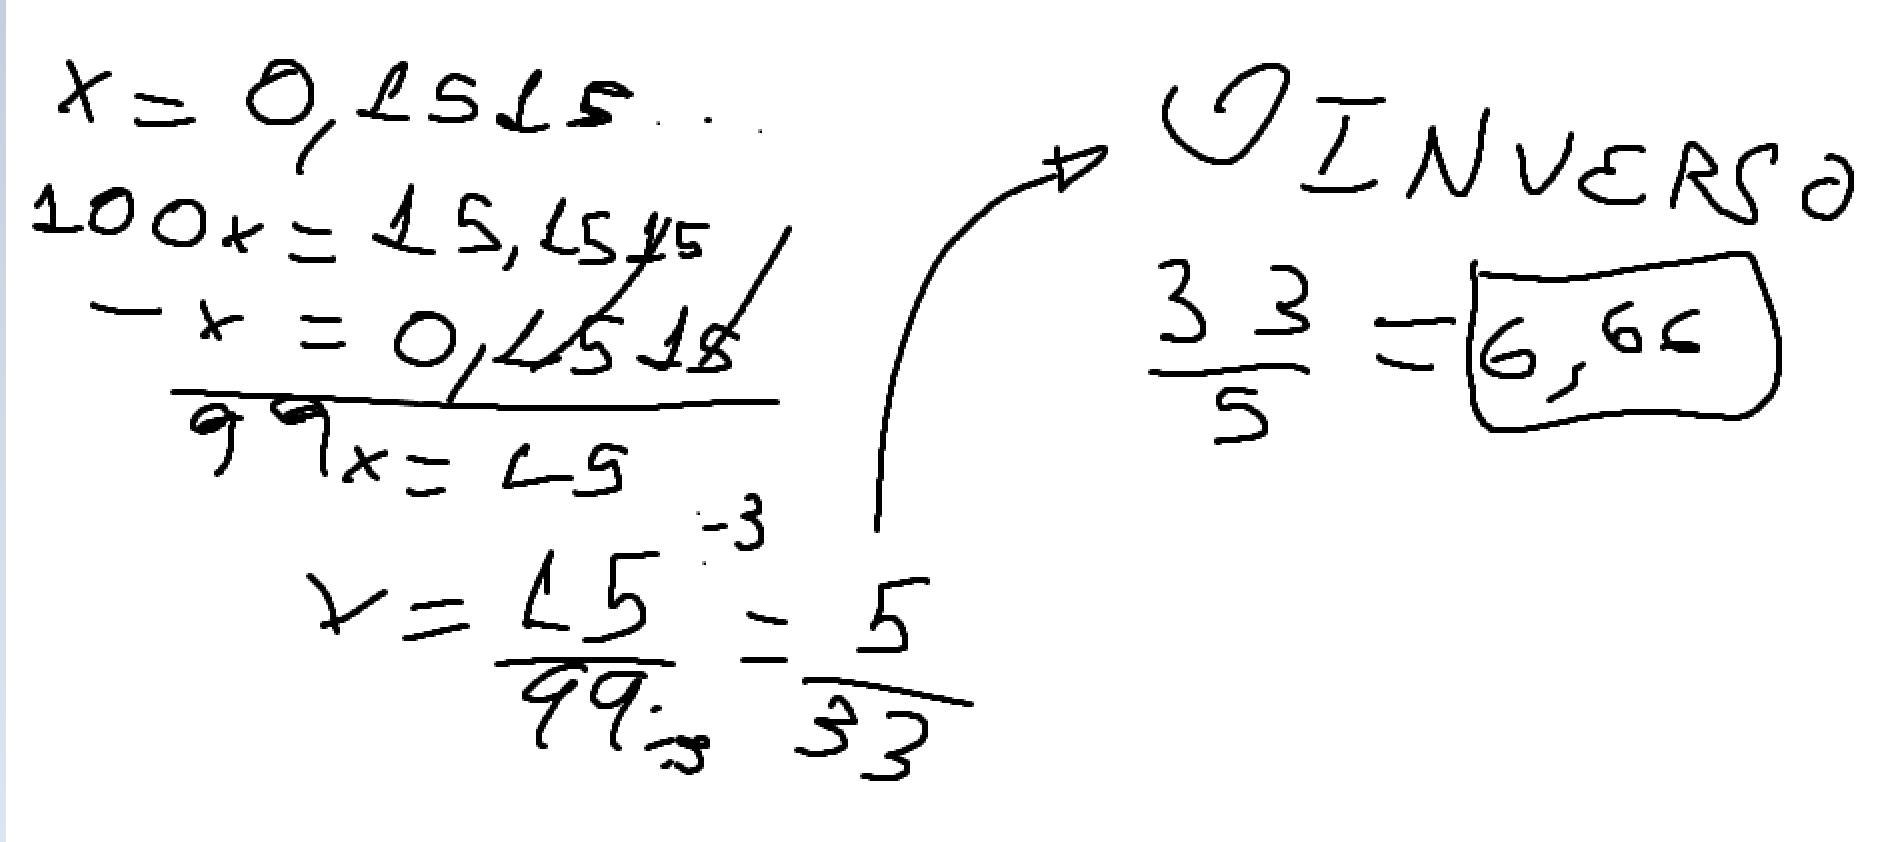 x = 0,1515...
100x = 15,1515
- x = 0,1515
99x = 15
x = 15/99 ÷3 ÷3 = 5/33
O INVERSO
33/5 = 6,66